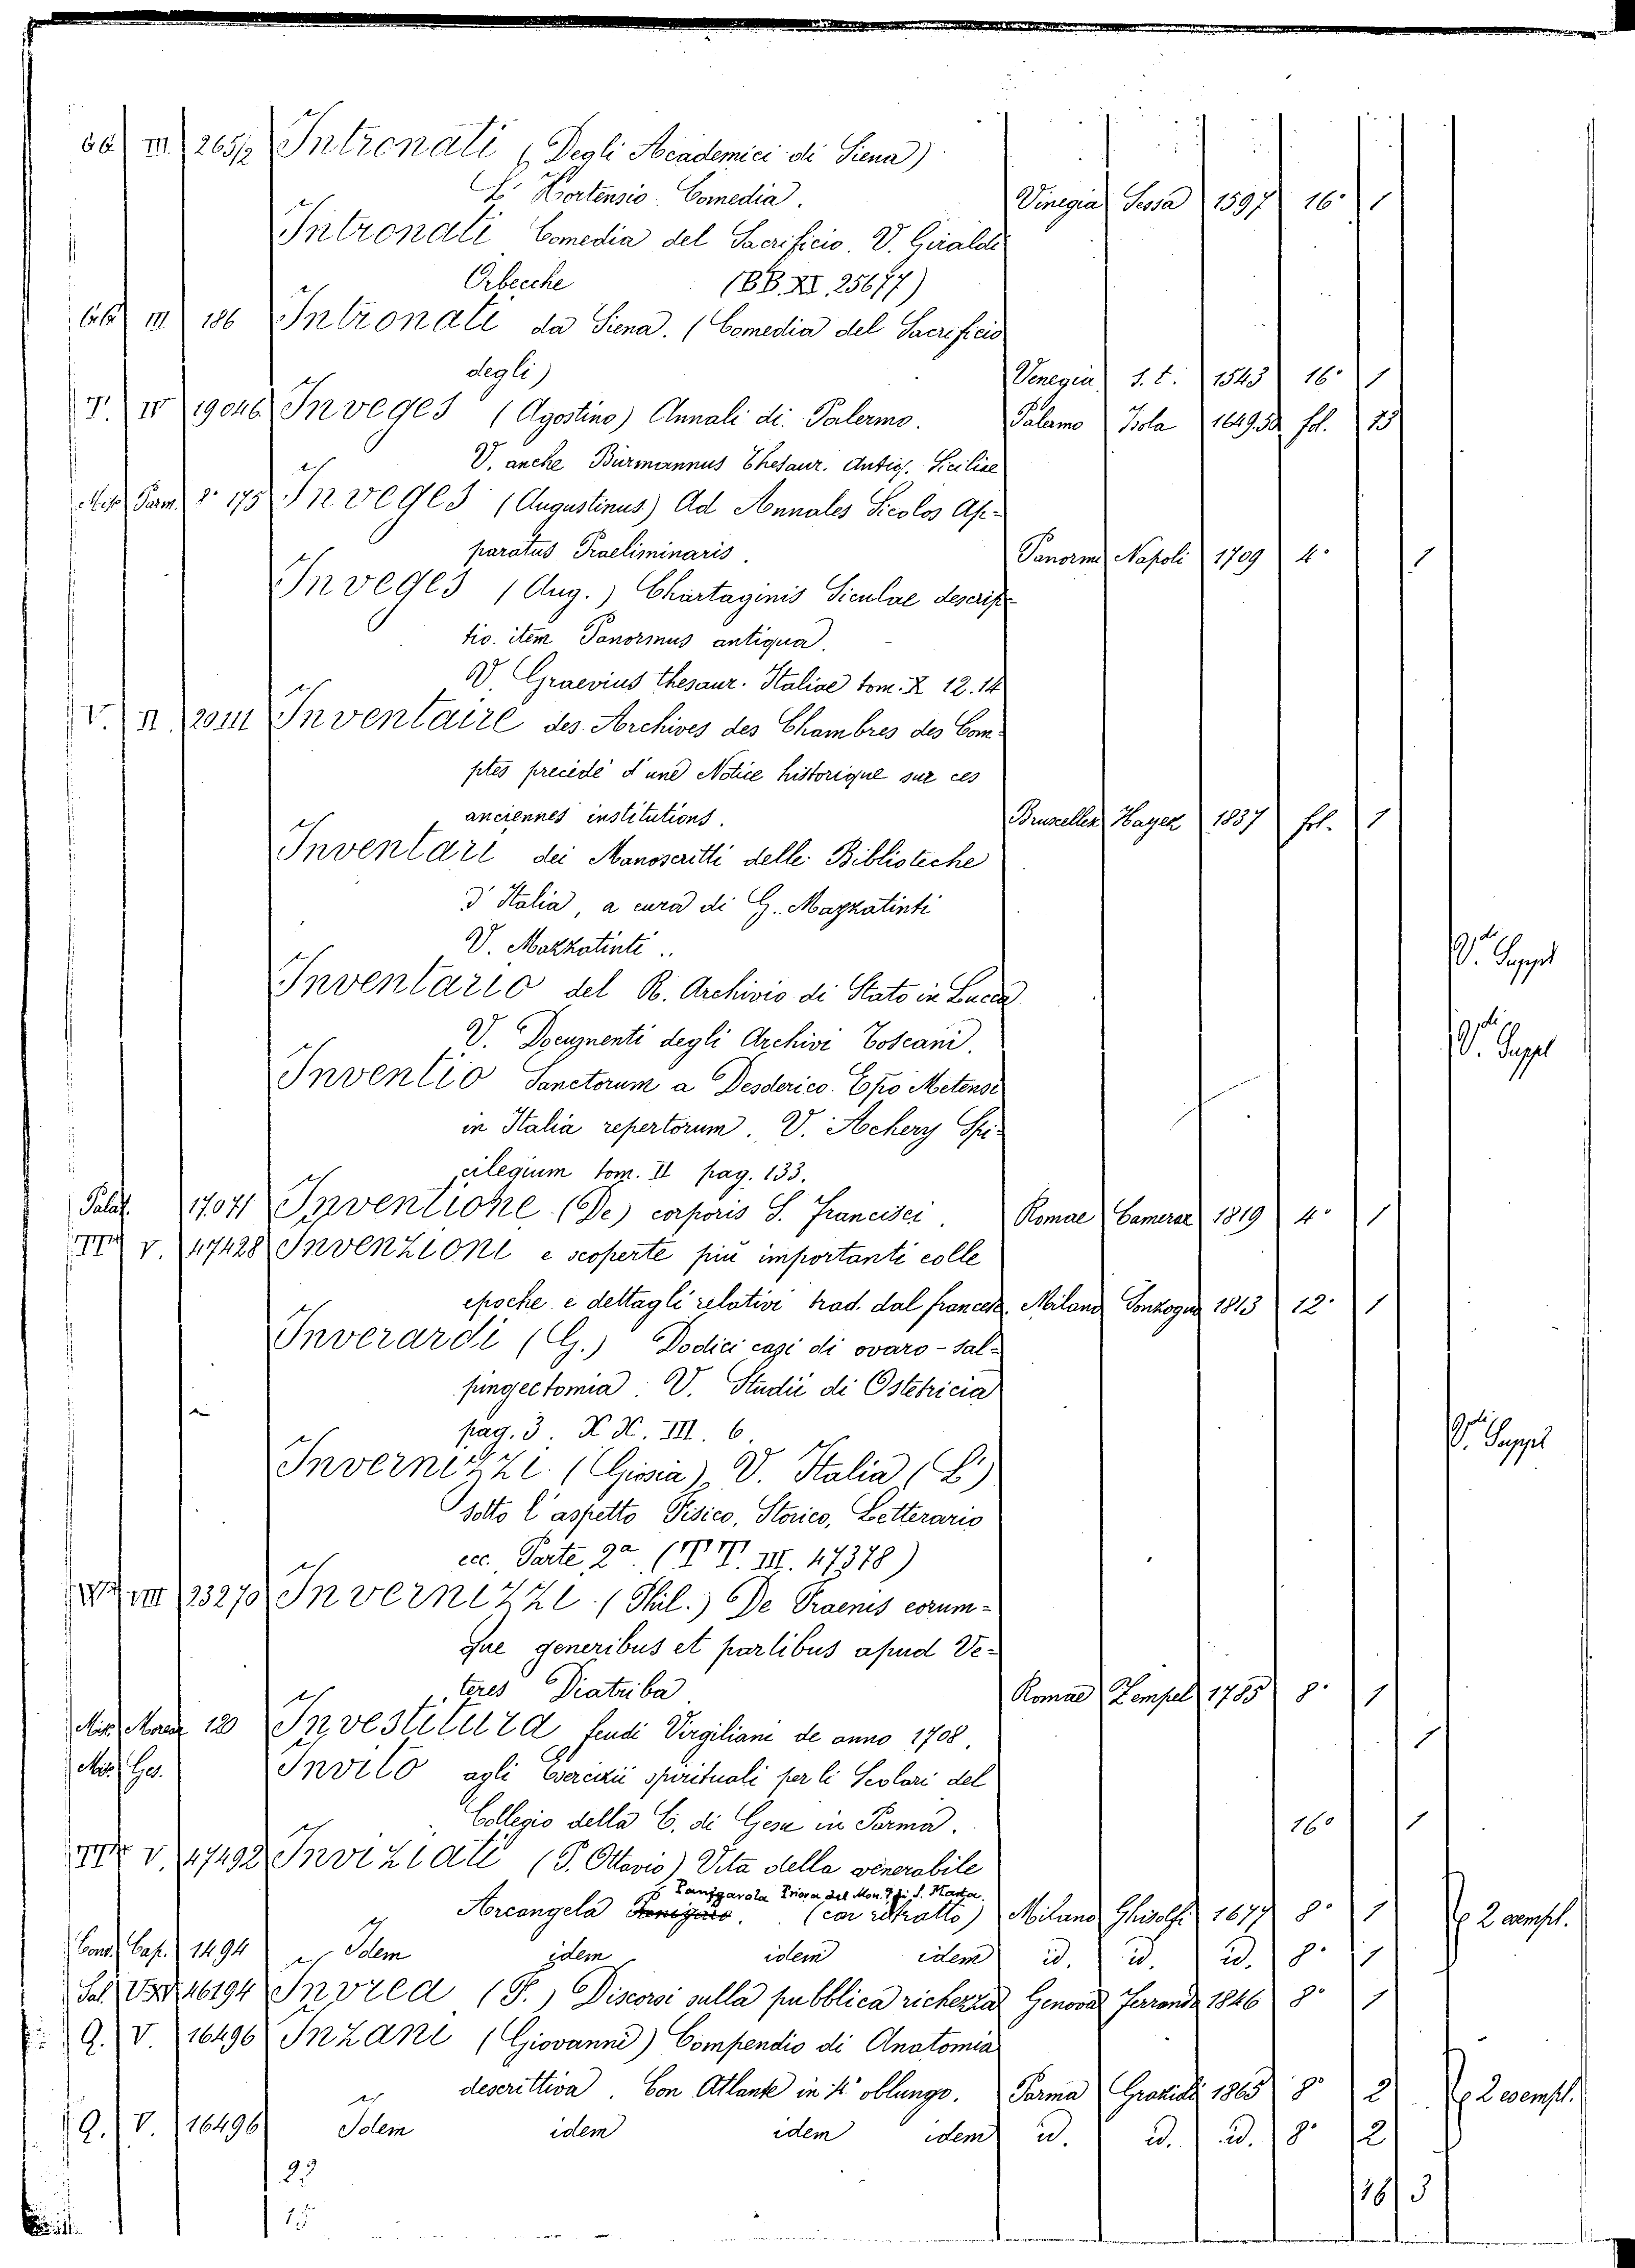 III. 265/2 Intronati (Degli Academici di Siena)
L' Hortensio. Comedia. Vinegia Sessa 1597 16° 1
Intronati Comedia del Sacrificio. V. Giraldi
Orbecche (BB. XI. 25677)
III 186 Intronati da Siena. (Comedia del Sacrificio
degli) Venegia s.t. 1543 16° 1
T. IV 19046 Inveges (Agostino) Annali di Palermo. Palermo Isola 1649.50 fol.
V. anche Burmannus Thesaur. Antiq. Siciliae
Mss. Parm. 2° 175 Inveges (Augustinus) Ad Annales Sicolos Ap-
paratus Praeliminaris. Panormi Napoli 1709 4° 1
Inveges (Aug.) Chartaginis Siculae descrip-
tio. item Panormus antiqua.
V. Graevius thesaur. Italiae tom. X 12.14
V. II. 20111 Inventaire des Archives des Chambres des Com-
ptes precédé d'une Notice historique sur ces
anciennes institutions. Bruxelles Hayez 1837 fol. 1
Inventari dei Manoscritti delle Biblioteche
d'Italia, a cura di G. Mazzatinti
V. Mazzatinti.. V. Suppl
Inventario del R. Archivio di Stato in Lucca
V. Documenti degli Archivi Toscani. V. Suppl
Inventio Sanctorum a Desderico Epo Metensi
in Italia repertorum. V. Achery Spi-
cilegium tom. II pag. 133.
Palat. 17071 Inventione (De) corporis S. Francisci. Romae Camerae 1819 4° 1
TT V. 47428 Invenzioni e scoperte più importanti colle
epoche e dettagli relativi trad. dal francese. Milano Sonzogno 1813 12° 1
Inverardi (G.) Dodici casi di ovaro-sal-
pingectomia. V. Studii di Ostetricia
pag. 3. XX. III. 6. V. Suppl
Invernizzi (Giosia) V. Italia (L')
sotto l'aspetto Fisico, Storico, Letterario
ecc. Parte 2ª (TT. III. 47378)
VIII 23270 Invernizzi (Phil.) De Fraenis eorum-
que generibus et partibus apud Ve-
teres Diatriba Romae Zempel 1785 8° 1
Mss. 120 Investitura feudi Virgiliani de anno 1708. 1
Mss. Ges. Invito agli Esercizii spirituali per li Scolari del
Collegio della C. di Gesu in Parma. 16° 1
V. 47492 Inviziati (P. Ottavio) Vita della venerabile
Panigarola Priora del Mon.° di S. Marta.
Arcangela (con ritratto) Milano Ghisolfi 1677 8° 1 2 esempl.
Cond. Cap. 1494 Idem idem idem idem id. id. id. 8° 1
Sal. 46194 Invrea (F.) Discorsi sulla pubblica richezza Genova Ferrando 1846 8° 1
Q. V. 16496 Inzani (Giovanni) Compendio di Anatomia
descrittiva. Con Atlante in 4° oblungo. Parma Grazioli 1865 8° 2 2 esempl.
Q. V. 16496 Idem idem idem idem id. id. id. 8° 2
23
16 3
15